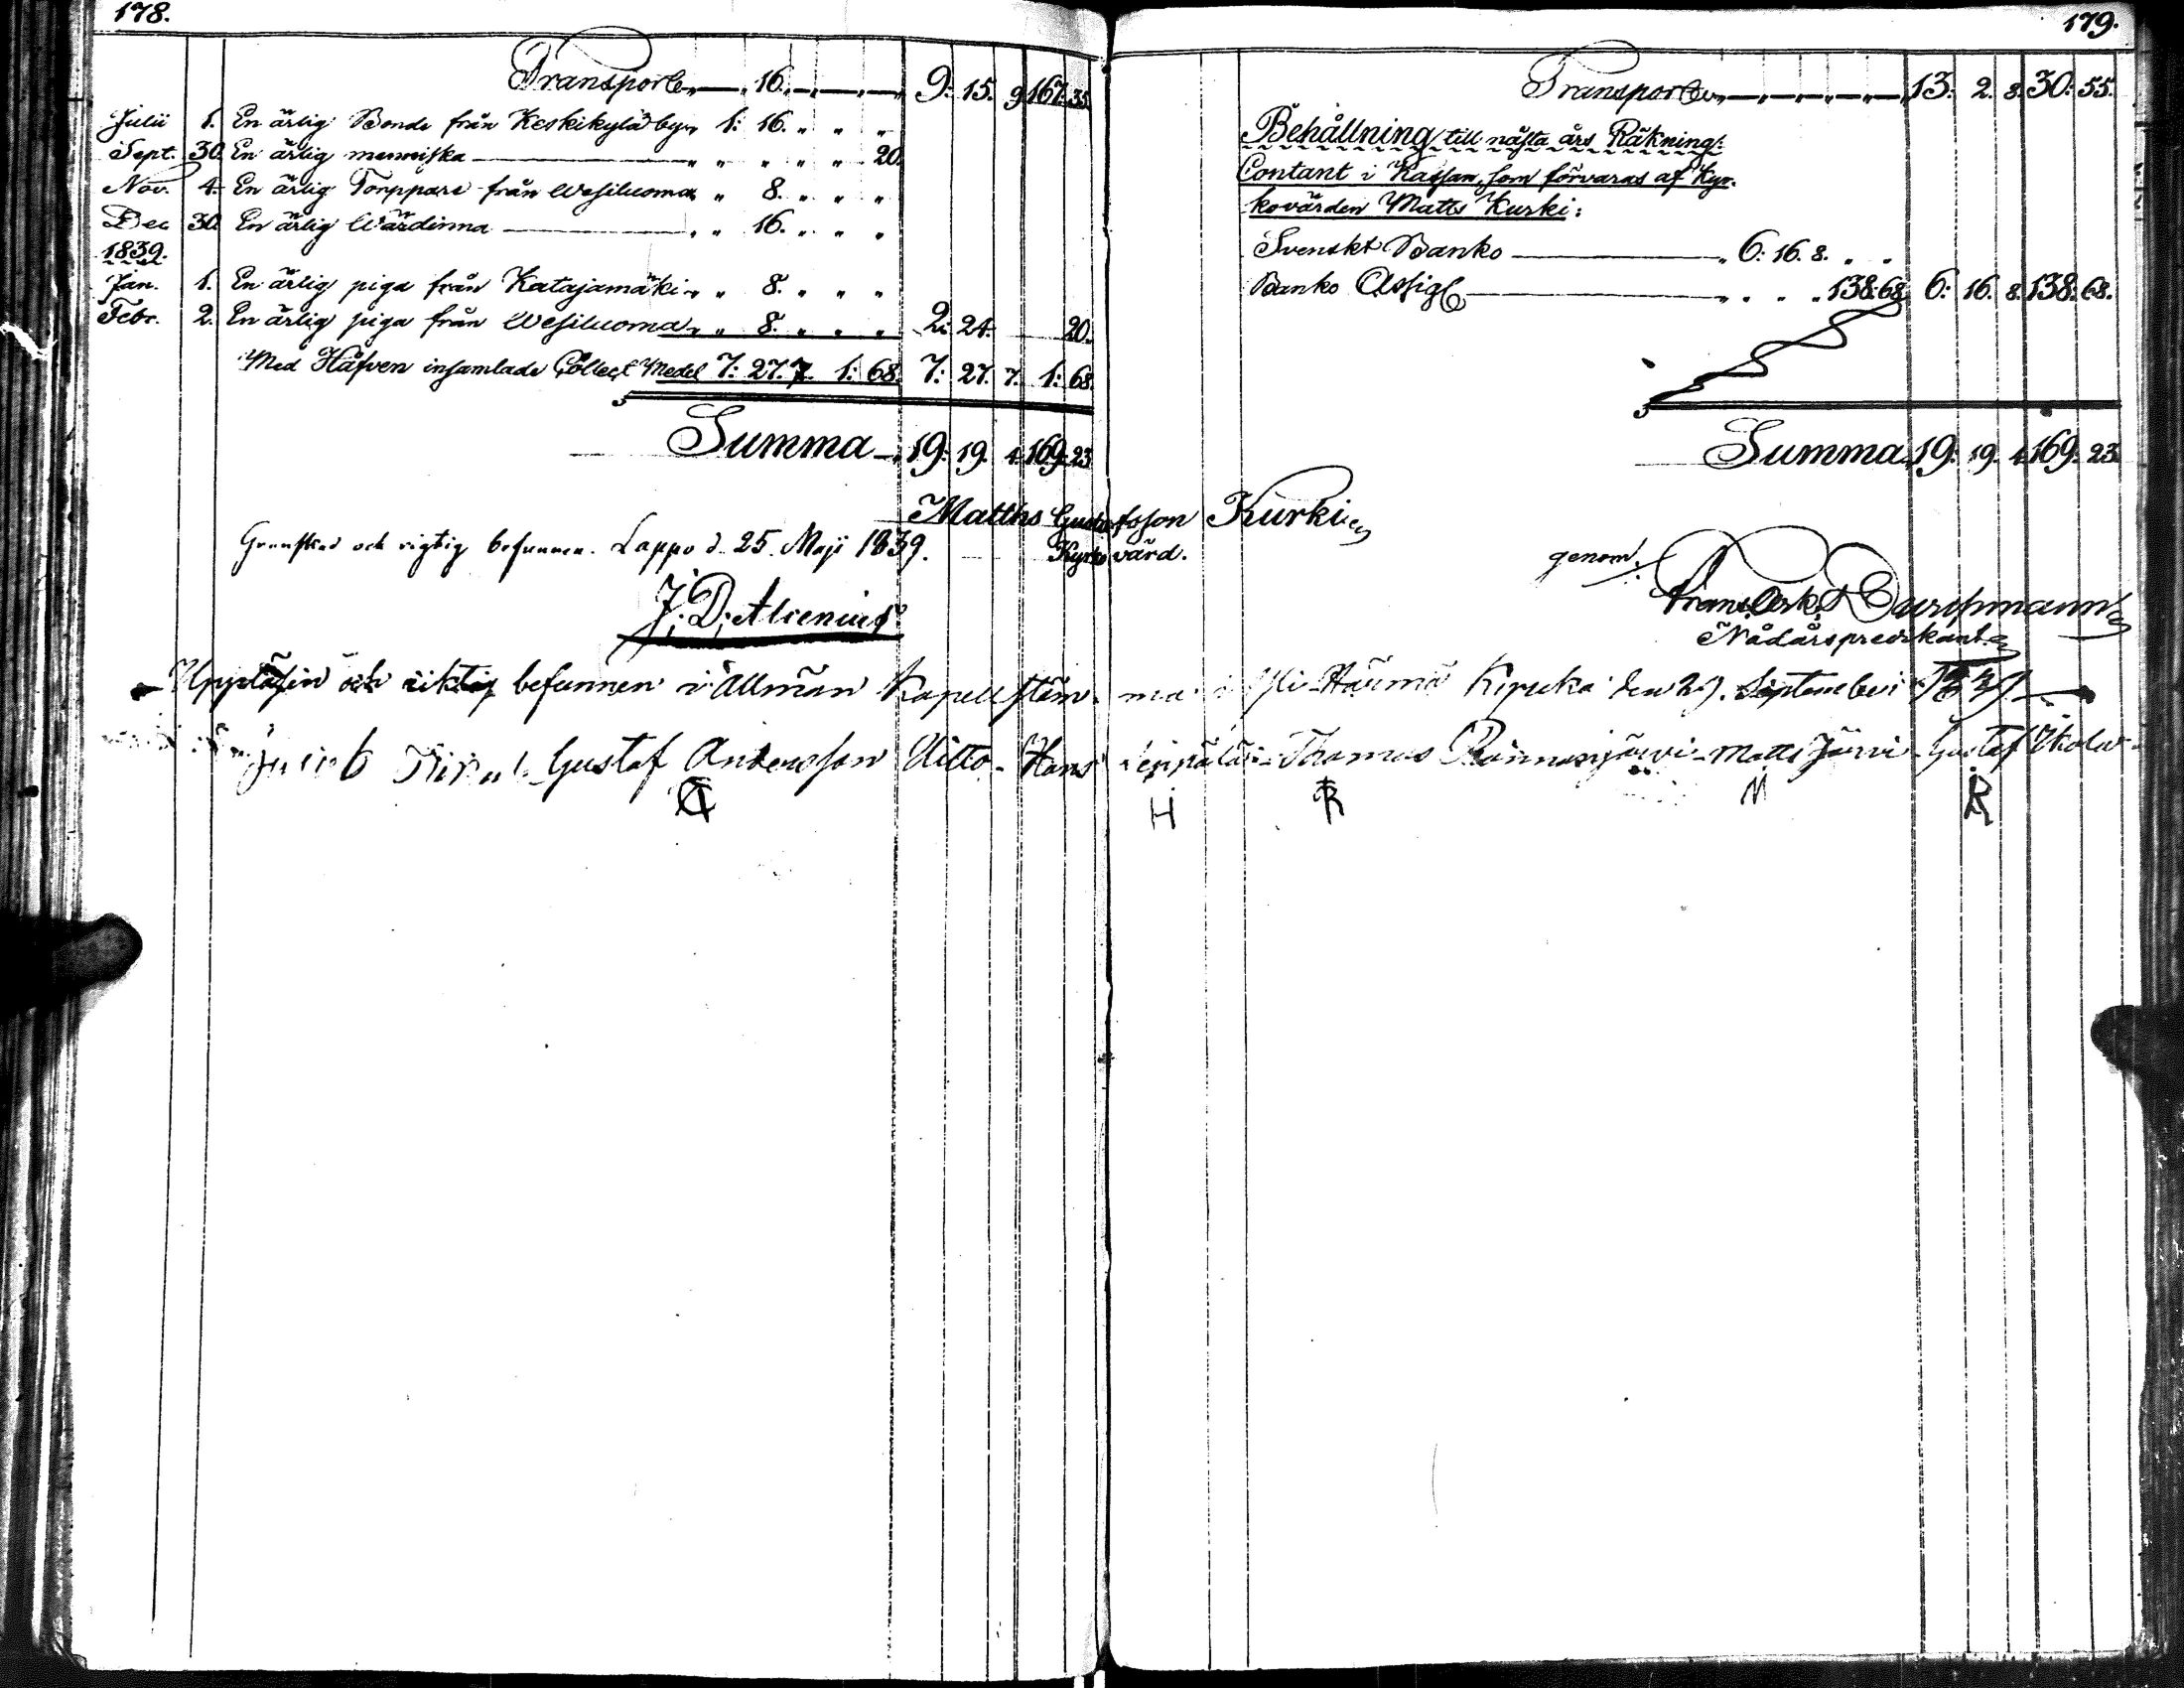 178.
Transport " — " 16. " — " — " — " 9: 15. 9 167: 35.
Julii 1. En ärlig Bonde från Keskikylä by " 1: 16. " " "
Sept. 30. En ärlig menniska — " " " " " 20.
Nov. 4. En ärlig Torppare från Wesiluoma " " 8. " " "
Dec 30. En ärlig Wärdinna — " " 16. " " "
1839.
Jan. 1. En ärlig piga från Katajamäki " " 8. " " "
Febr. 2. En ärlig piga från Wesiluoma " " 8. " " " 2: 24. 20.
Med Häfven insamlade Collect Medel 7: 27. 7. 1: 68. 7: 27. 7. 1: 68.
Summa — 19: 19. 4. 169: 23.
Matths Gustafsson Kurki
Kyrkovärd.
Granskad och rigtig befunnen. Lappo d. 25. Maji 1839.
J: D: Alcenius
179.
Transport " — " — " — " — " — 13: 2. 8. 30: 55.
Behållning till nästa års Räkning:
Contant i Kassan, som förvaras af Kyr-
kovärden Matts Kurki:
Svenskt Banko — " 6: 16. 8. " "
Banko Assig — " " " " 138: 68. 6: 16. 8. 138: 68.
Summa 19: 19. 4. 169: 23.
genom:
Nådårspredikant
Uppläsin och riktig befunnen i Allmän Kapellstäm-ma i Yli-Härmä Kyrcka den 29. September 1839
Gustaf Andersson Uitto - Hans - Thomas - Matts Järvi - Gustaf
H R M R